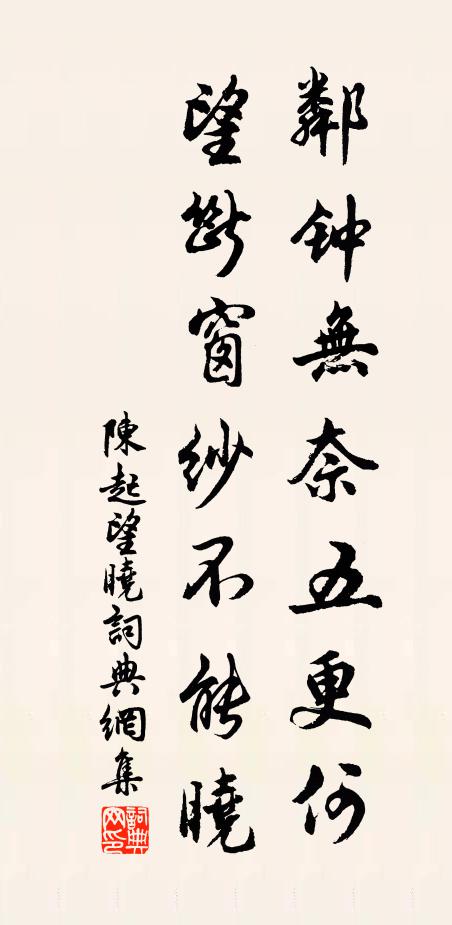 鄰钟無奈五更何
望斷窗纱不能曉
陳起望曉詞典網集
詞典网印